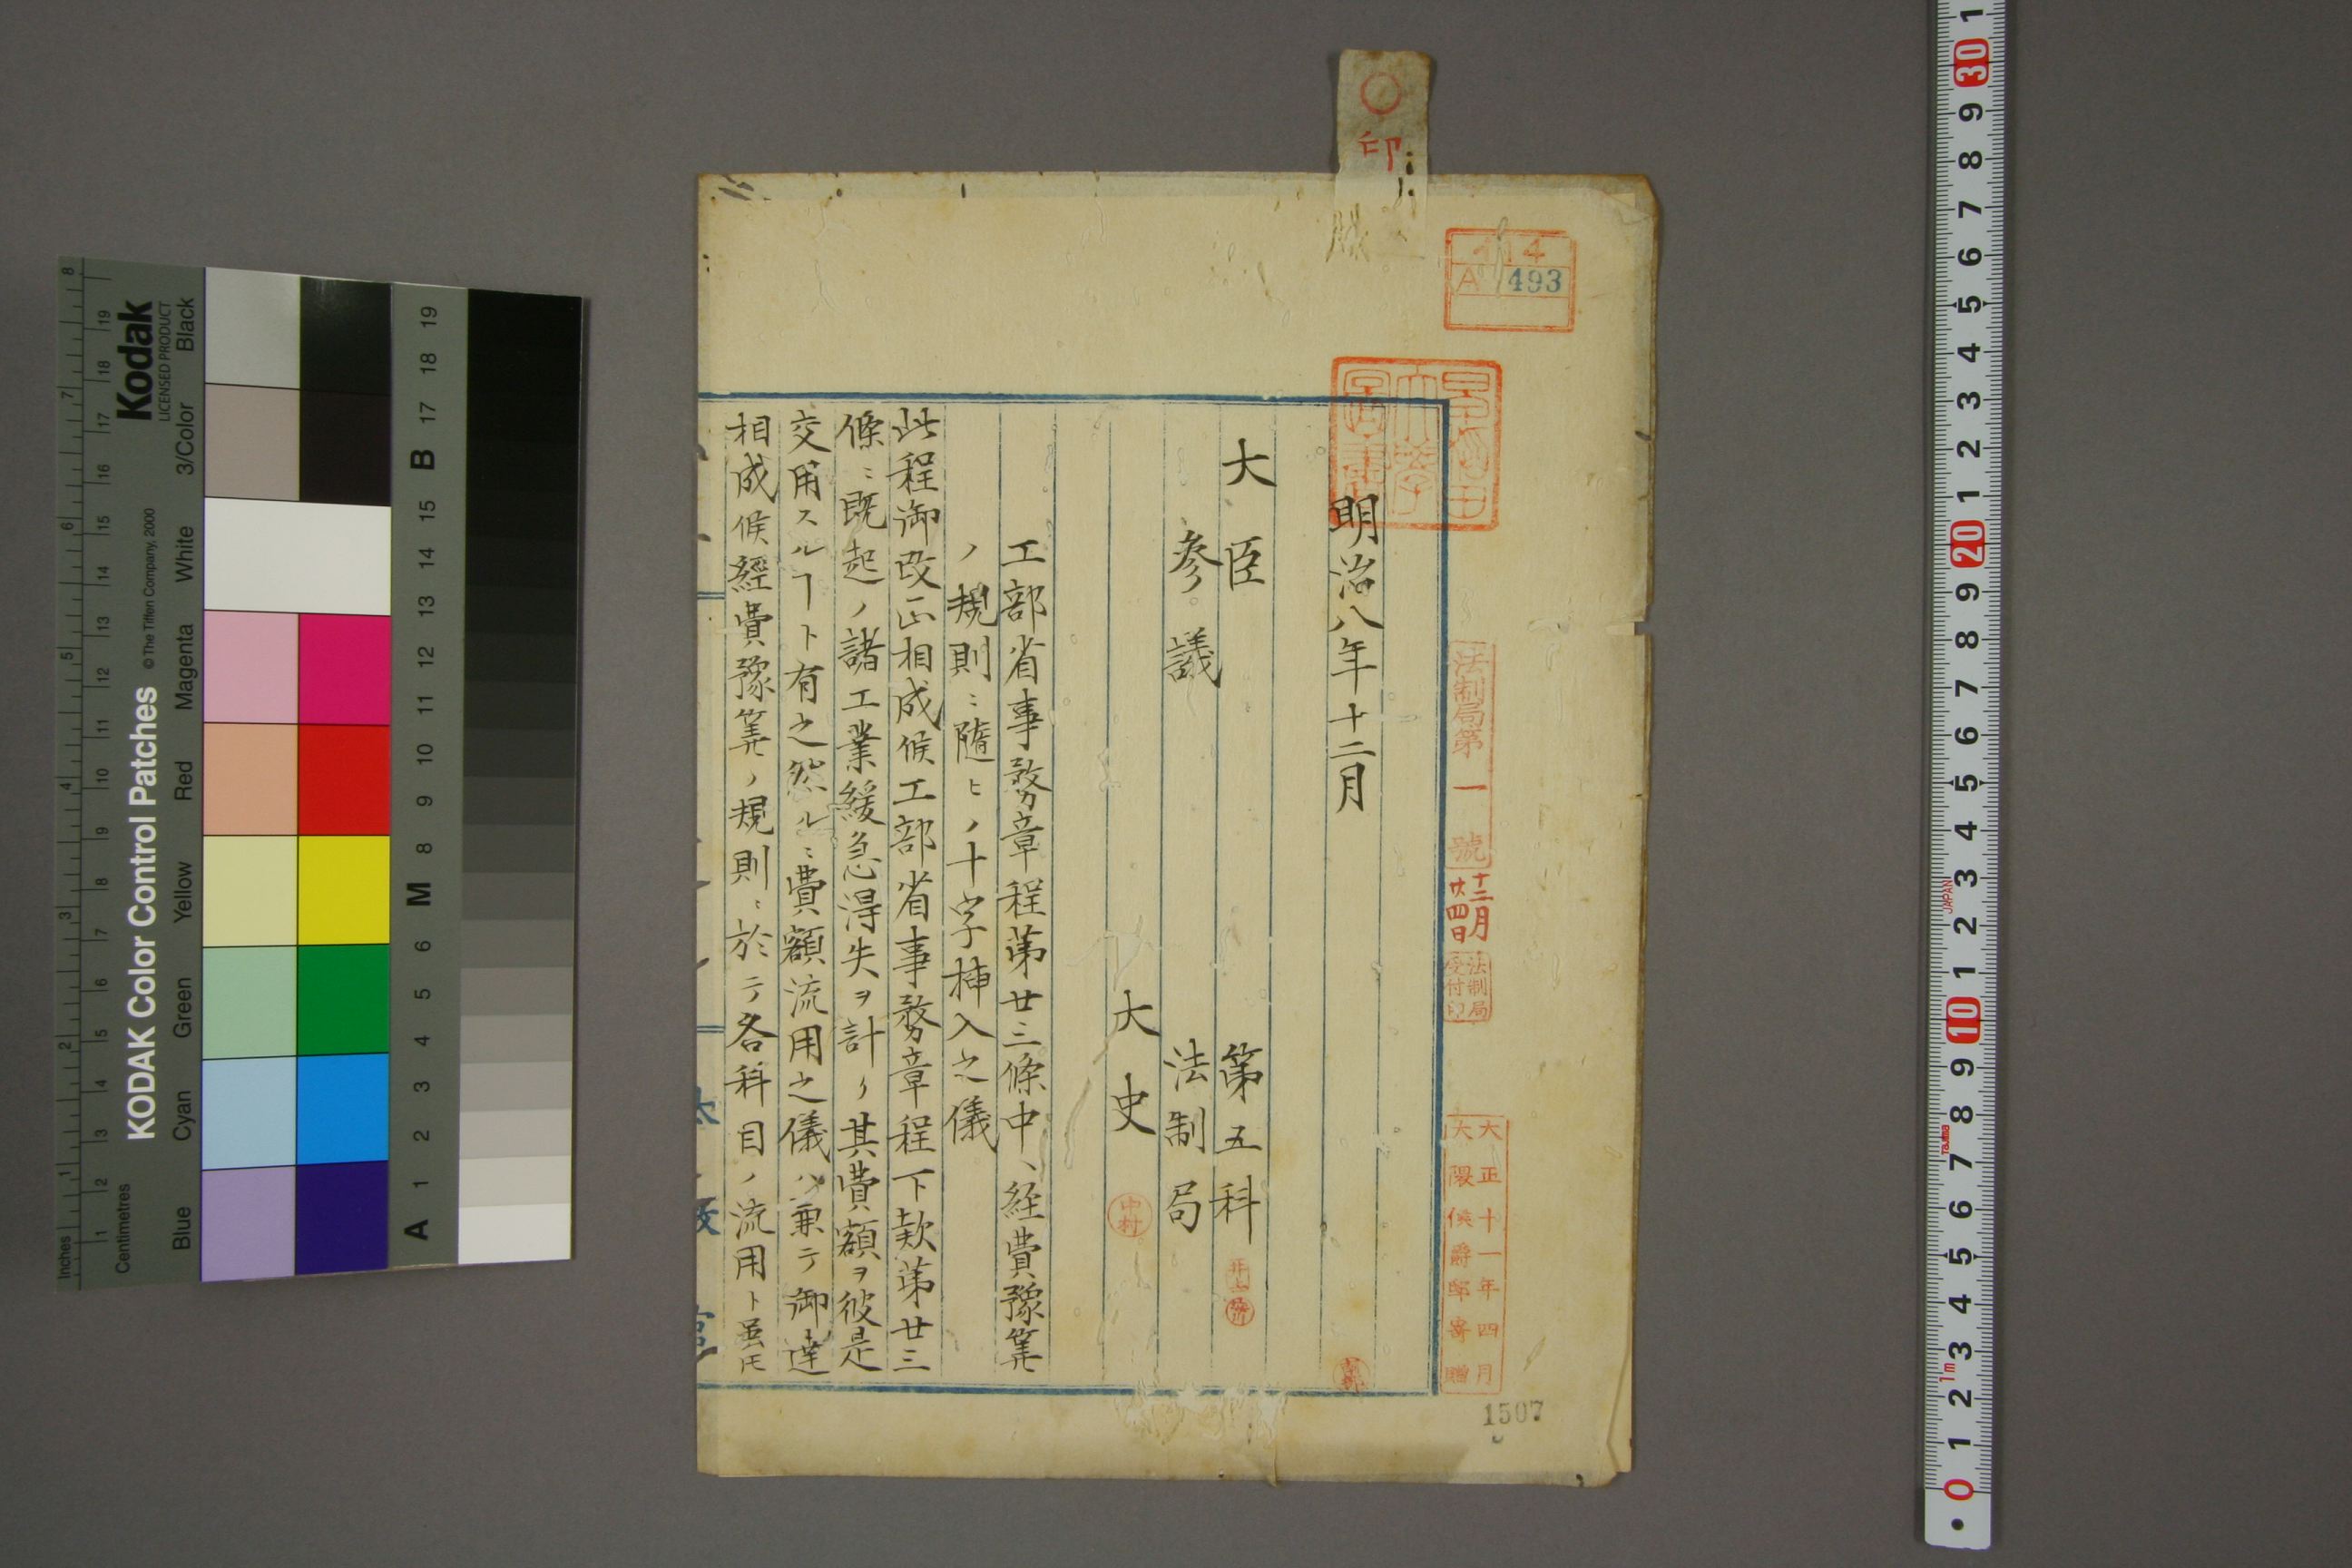 印
イ14
A 493
明治八年十二月
大臣
第五科
参議
法制局
大史
中村
工部省事務章程第廿三條中、経費豫筭
ノ規則ニ隨ヒノ十字挿入之儀
此程御改正相成候工部省事務章程下款第廿三
條ニ既起ノ諸工業緩急得失ヲ計リ其費額ヲ彼是
交用スルヿト有之然ルニ費額流用之儀ハ兼テ御達
相成候經費豫筭ノ規則ニ於テ各科目ノ流用ト虽𪜈
法制局第一號
十二月
廿四日
法制局
受付印
大正十一年四月
大隈侯爵邸寄贈
1507
Kodak
LICENSED PRODUCT
KODAK Color Control Patches
© The Tiffen Company, 2000
Inches
Centimetres
Blue
Cyan
Green
Yellow
Red
Magenta
White
3/Color
Black
A 1 2 3 4 5 6 M 8 9 10 11 12 13 14 15 B 17 18 19
JAPAN
Tajima
1m